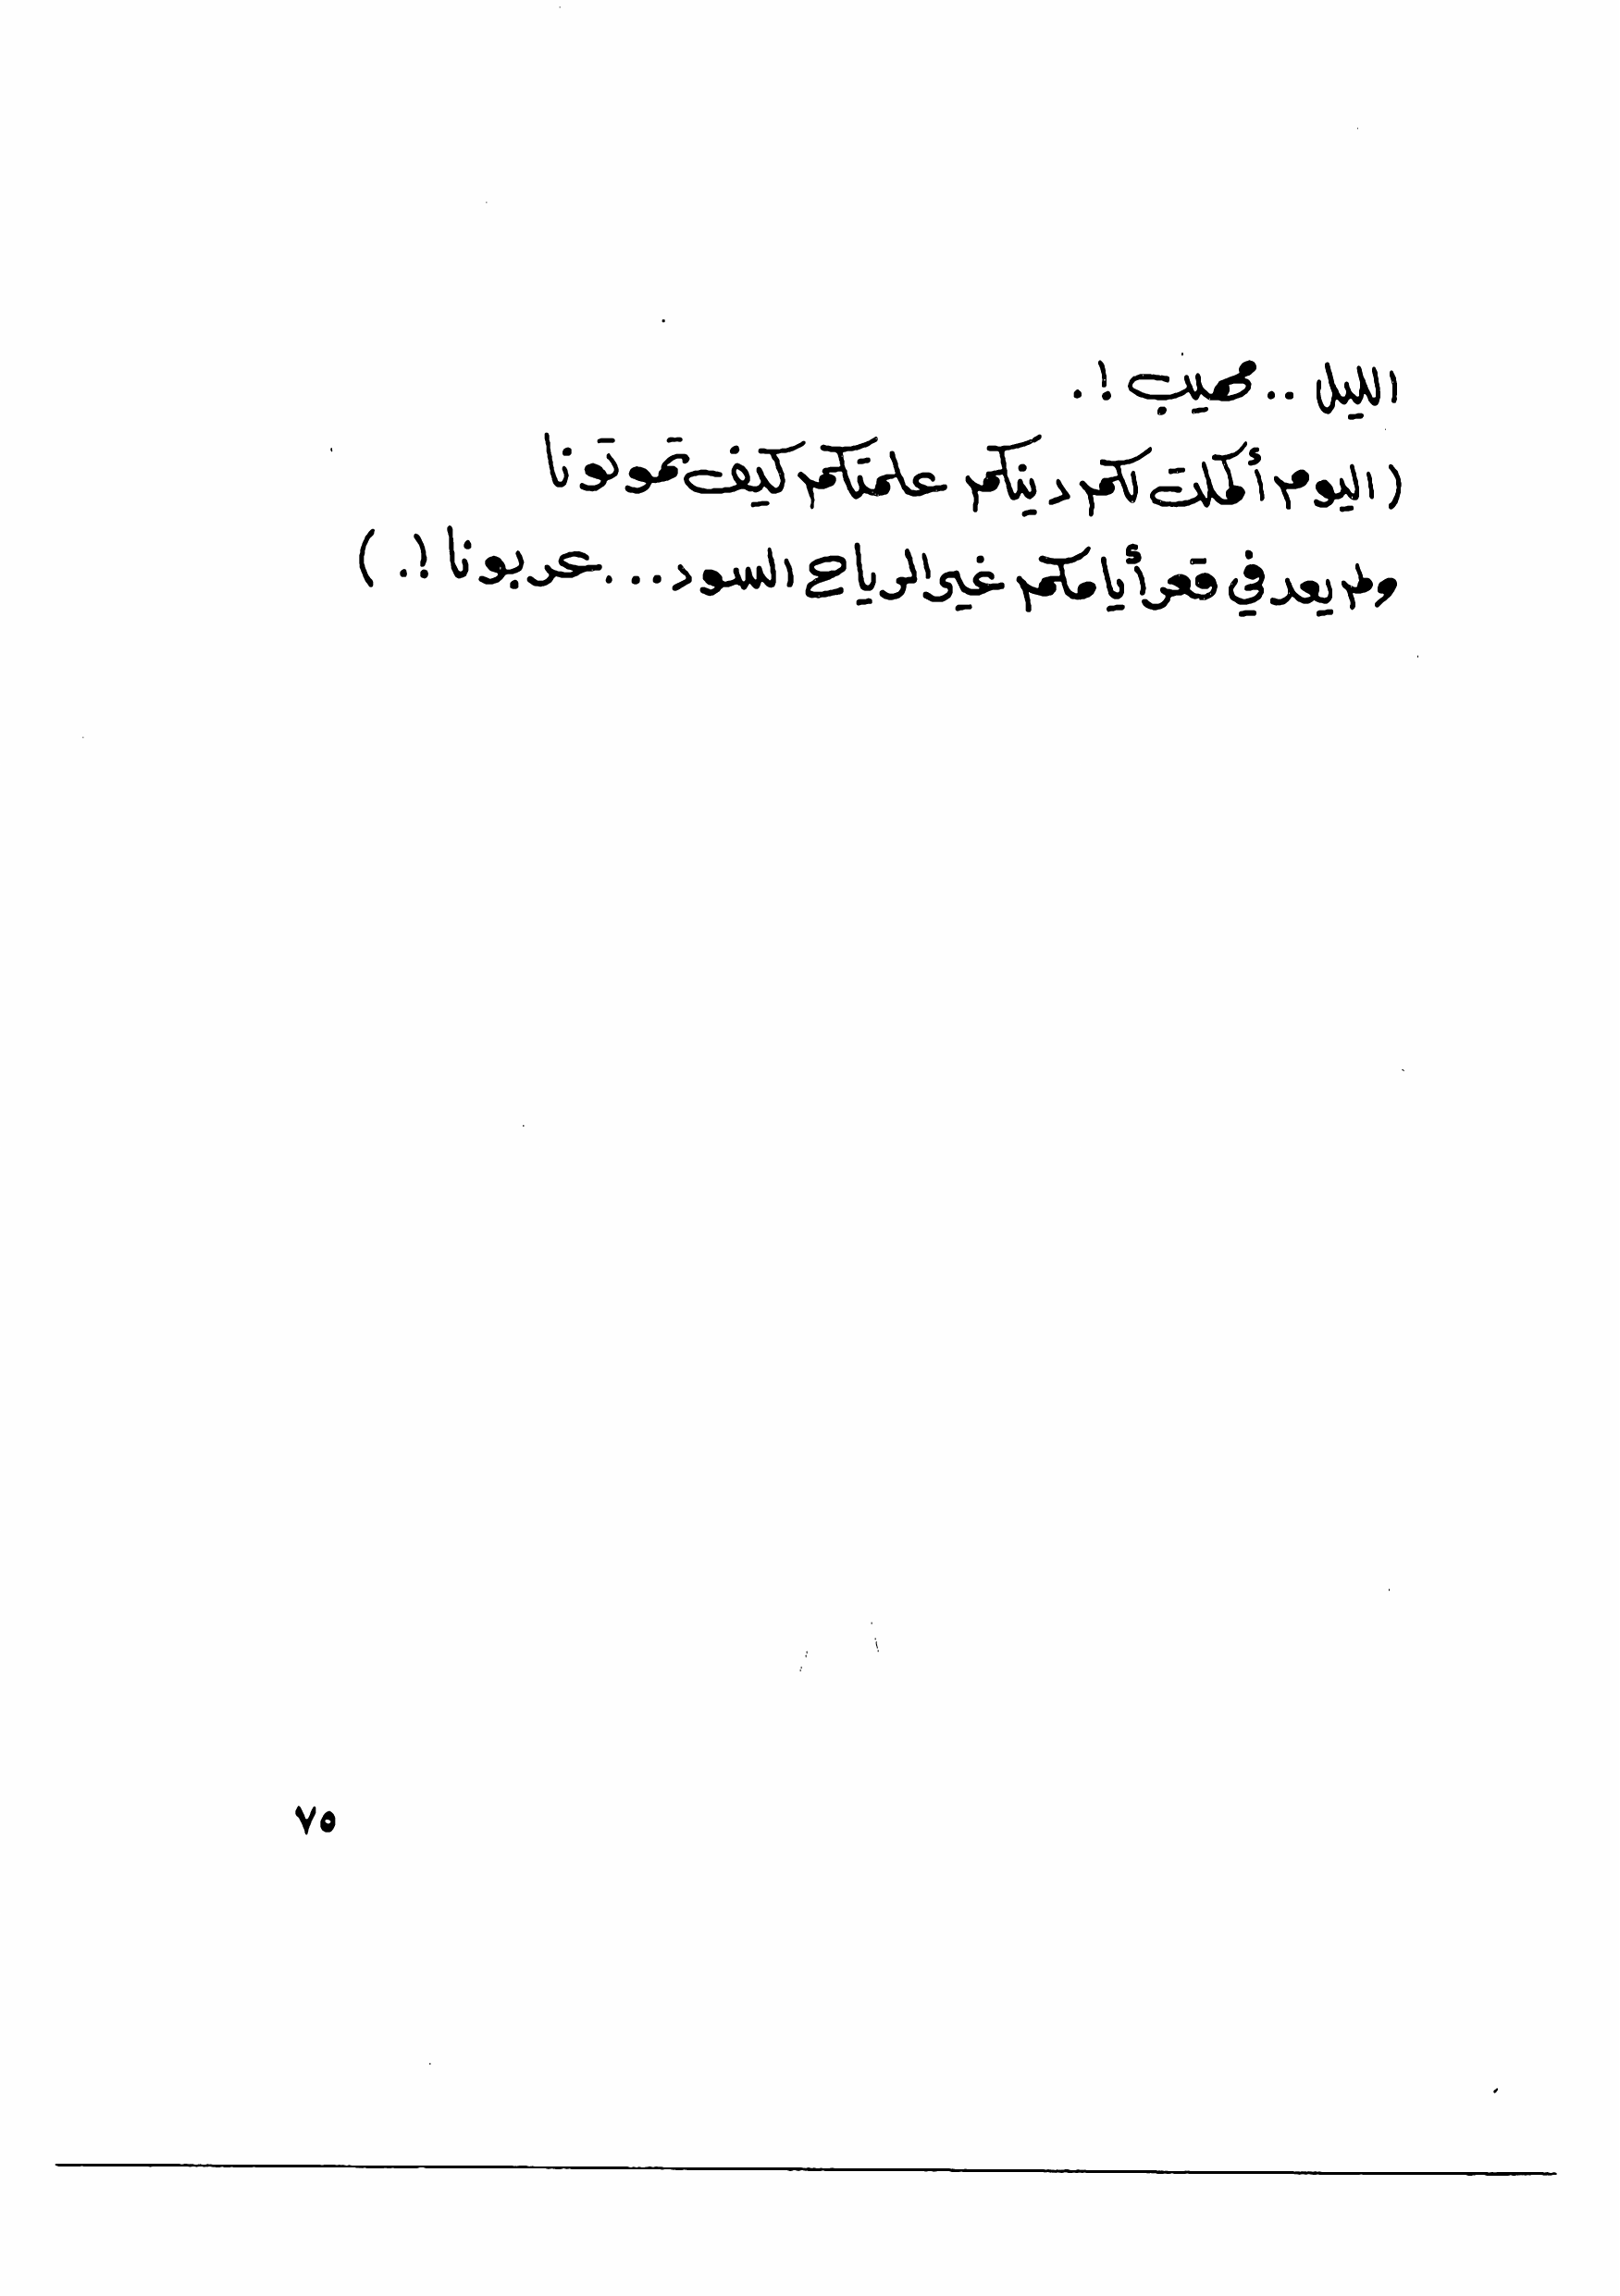 الليل .. مصيب !.
(اليوم أكملت لكم دينكم علمتكم كيف تموتونا
ولم يعد في قعر أيامكم غير الرياح السود... عربونا !.)
٧٥